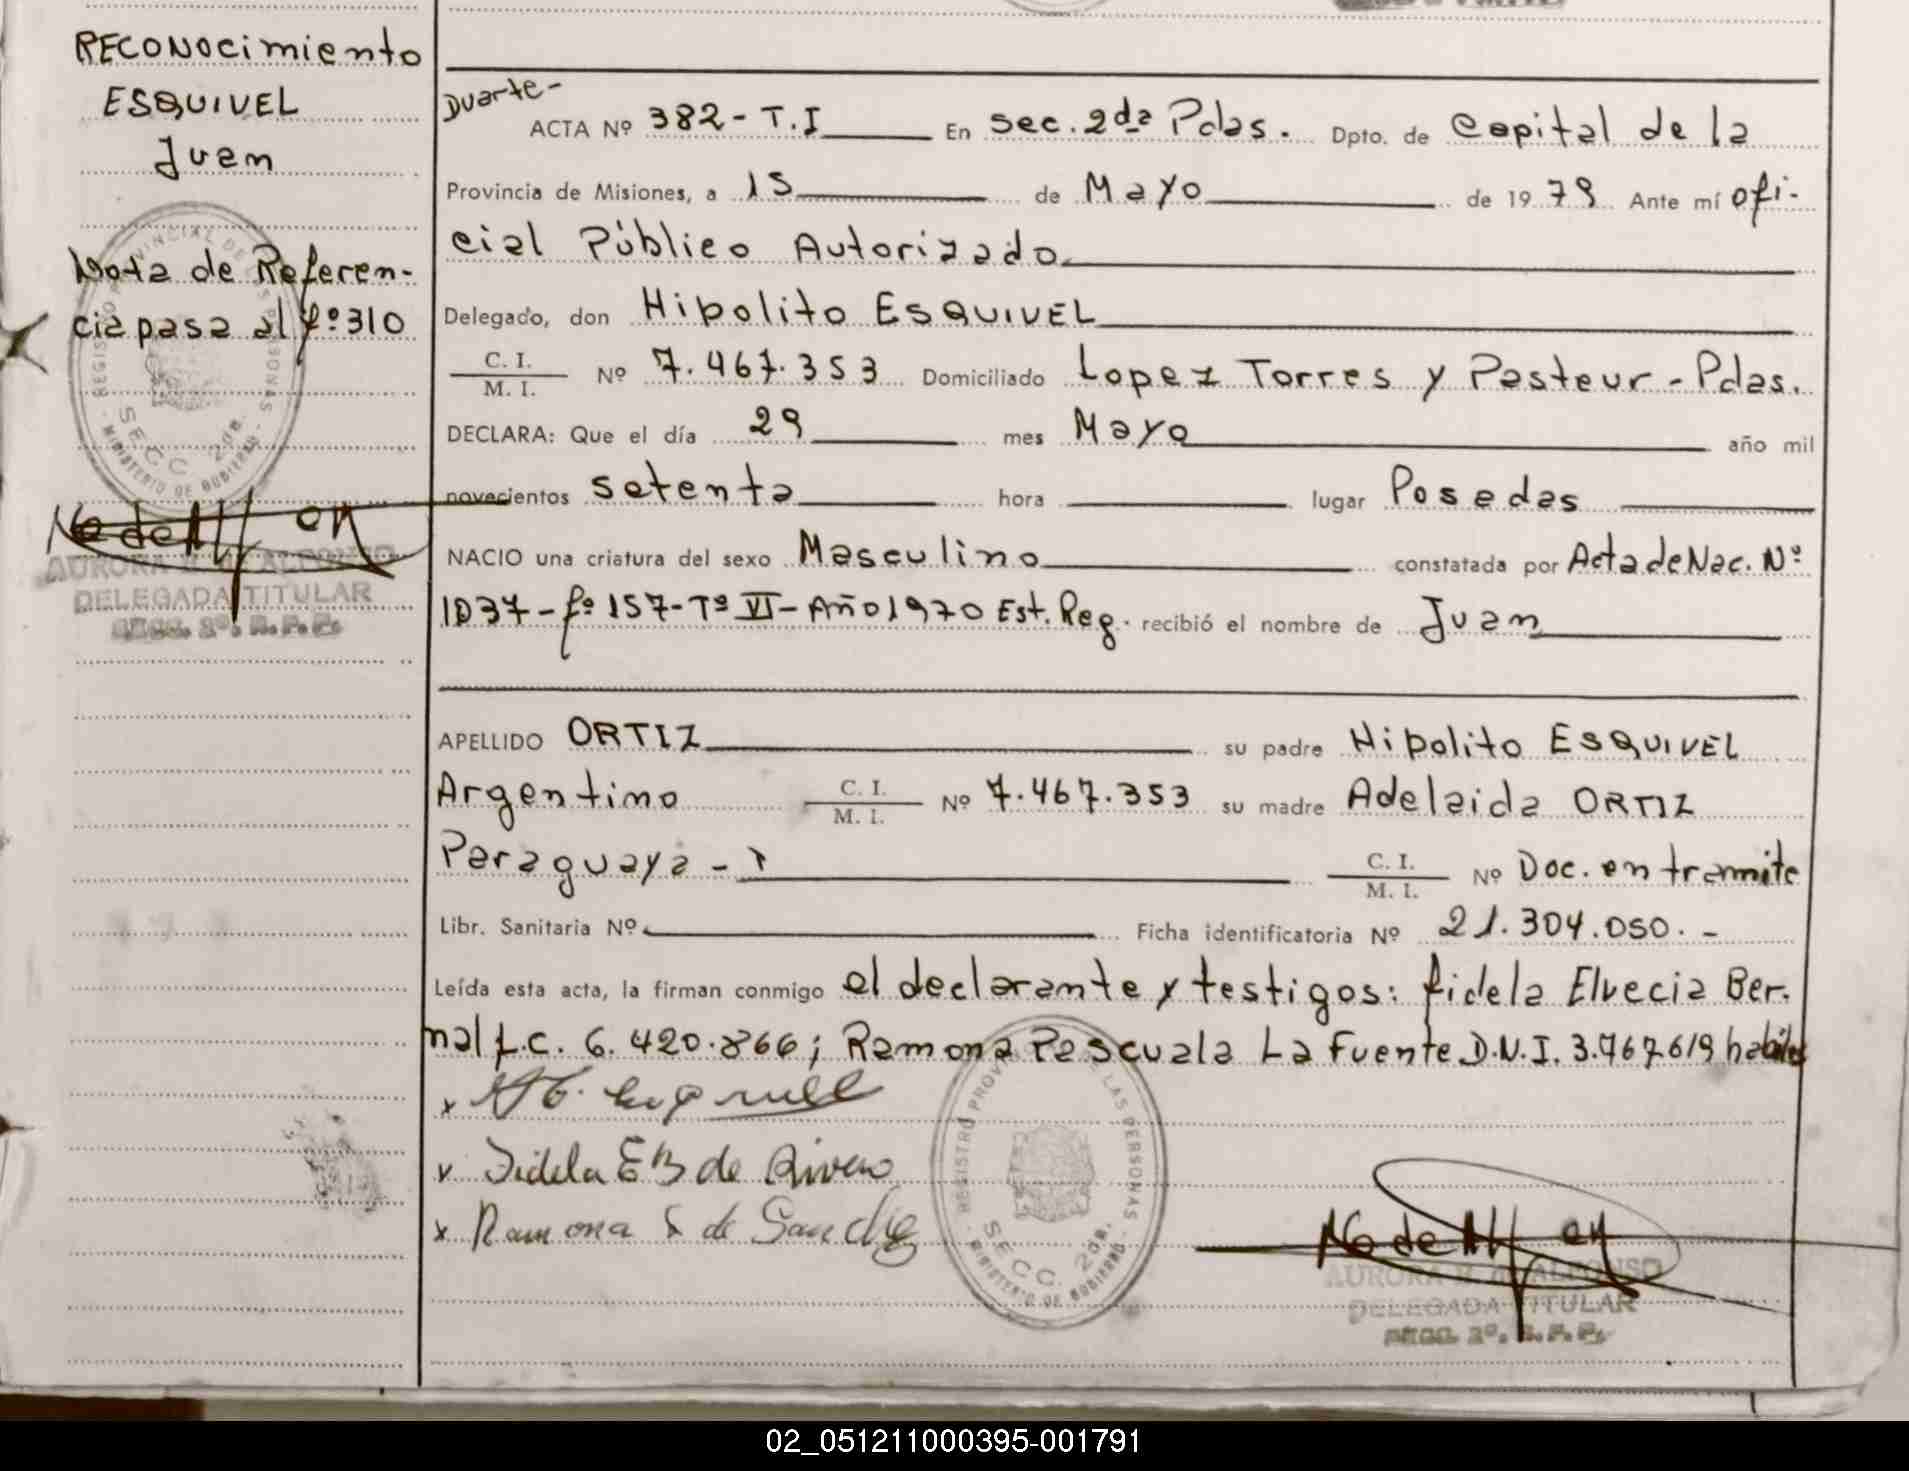 RECONOCimiento
ESQUIVEL
Juan
Nota de Referen-
cia pasa al fº 310
REGISTRO PROVINCIAL DE LAS PERSONAS
SECC. 2da.
MINISTERIO DE GOBIERNO
DELEGADA TITULAR
SECC. 2º. R. P. P.
Duarte-
ACTA Nº 382 - T.I En sec. 2da Pdas. Dpto. de Capital de la
Provincia de Misiones, a 15 de Mayo de 1979 Ante mí ofi-
cial Público Autorizado
Delegado, don Hipolito ESQUIVEL
C. I.
M. I. Nº 7.467.353 Domiciliado Lopez Torres y Pasteur - Pdas.
DECLARA: Que el día 29 mes Mayo año mil
novecientos setenta hora lugar Posadas
NACIO una criatura del sexo Masculino constatada por Acta de Nac. Nº
1037 - fº 157 - Tº VI - Año 1970 Est. Reg. recibió el nombre de Juan
APELLIDO ORTIZ su padre Hipolito ESQUIVEL
Argentino C. I.
M. I. Nº 7.467.353 su madre Adelaida ORTIZ
Paraguaya - C. I.
M. I. Nº Doc. en tramite
Libr. Sanitaria Nº Ficha identificatoria Nº 21.304.050. -
Leída esta acta, la firman conmigo el declarante y testigos: fidela Elvecia Ber-
nal L.C. 6.420.866; Ramona Pascuala La Fuente D.N.I. 3.767.619 habiles
x
x Fidela E B de Rivero
x Ramona L de Sanchez
REGISTRO PROVINCIAL DE LAS PERSONAS
SECC. 2da.
MINISTERIO DE GOBIERNO
DELEGADA TITULAR
SECC. 2º. R. P. P.
02_051211000395-001791